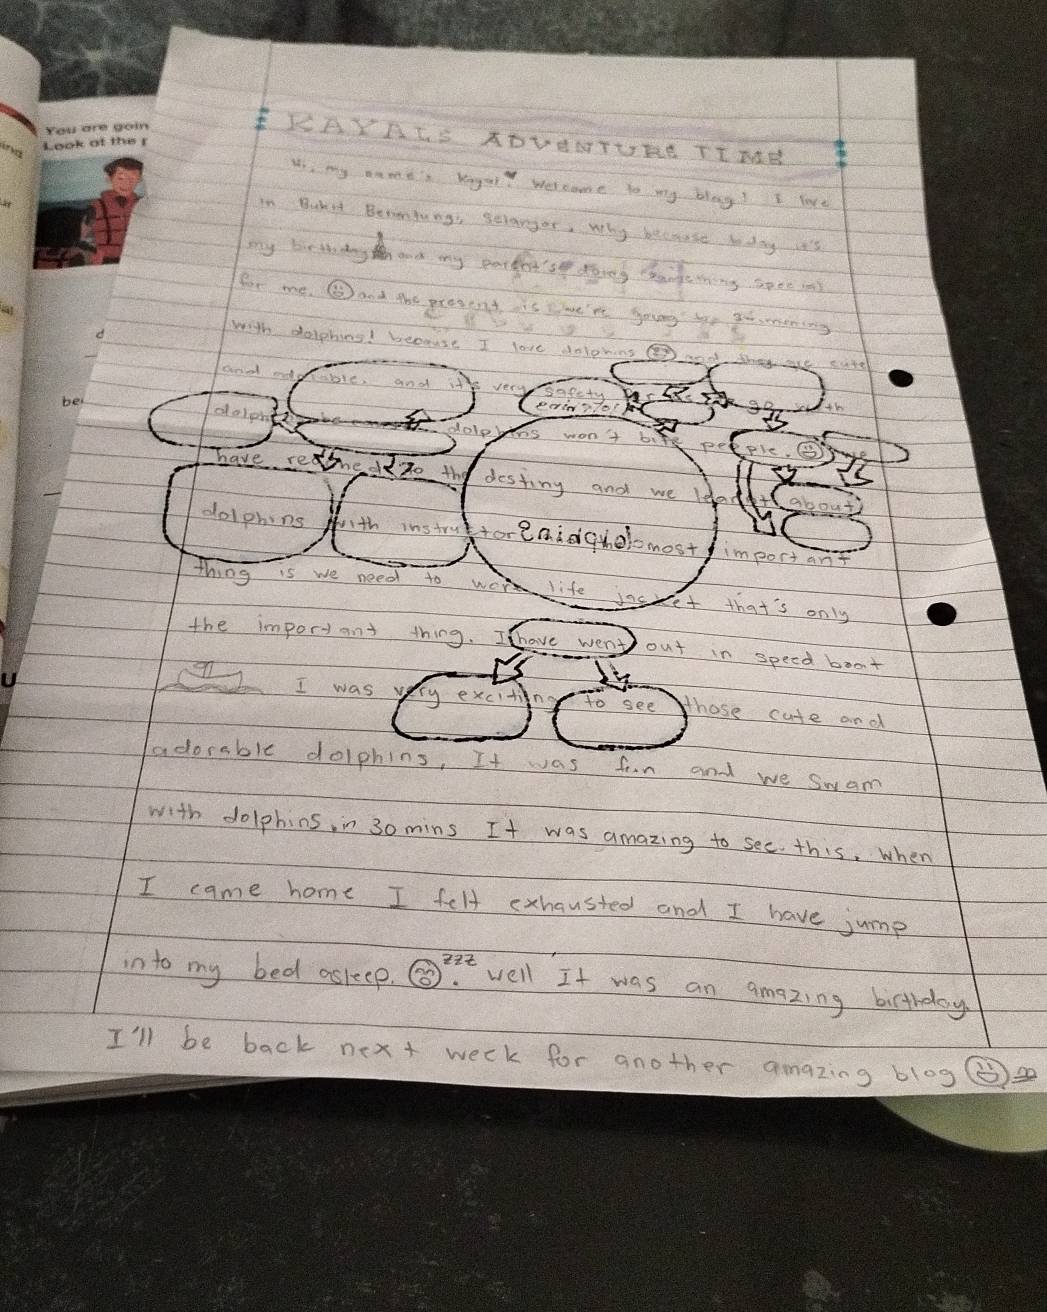 You are goin
Look at the
KAYALS ADVENTURE TIME
Hi, my name's Kayal. Welcome to my blog! I love
in Bukit Beruntung, Selangor, why because today it's
my birthday and my parent's doing something special
for me. and the present is we're going to swimming
with dolphins! because I love dolphins and they are cute
and adorable. and it's very safety go with
dolphins won't bite people. we
have reached to the destiny and we learnt about
dolphins with instructor most important
thing is we need to wore life jacket that's only
the important thing. I have went out in speed boat
I was very exciting to see those cute and
adorable dolphins, It was fun and we swam
with dolphins, in 30 mins It was amazing to see this. When
I came home I felt exhausted and I have jump
into my bed asleep. zzz. well It was an amazing birthday.
I'll be back next week for another amazing blog